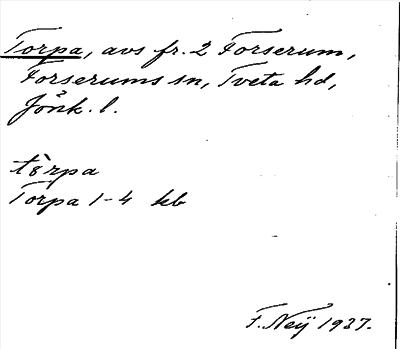 Torpa, avs fr. 2 Forserum,
Forserums sn, Tveta hd,
Jönk. l.
tòrpa
Torpa 1-4 kb
F. Neij 1937.